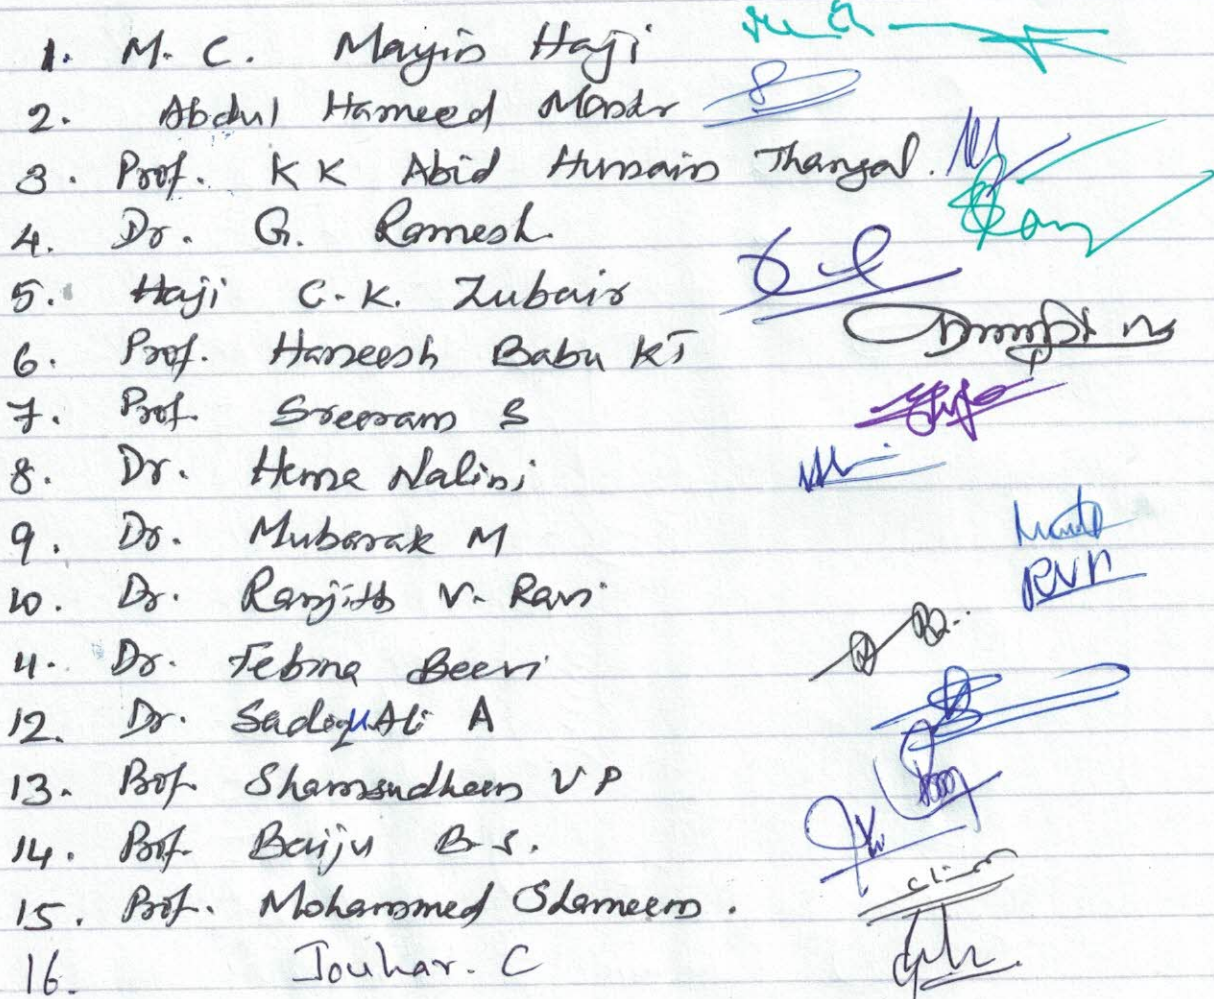 1. M. C. Mayin Haji
2. Abdul Hameed Master
3. Prof. KK Abid Hussain Thangal.
4. Dr. G. Ramesh
5. Haji C. K. Zubair
6. Prof. Haneesh Babu KT
7. Prof. Sreeram S
8. Dr. Hema Nalini
9. Dr. Mubarak M
10. Dr. Ranjith V. Ravi RVR
11. Dr. Febina Beevi
12. Dr. SadiquAli A
13. Prof. Shamsudheen VP
14. Prof. Baiju B.S.
15. Prof. Mohammed Shameem.
16. Jouhar. C